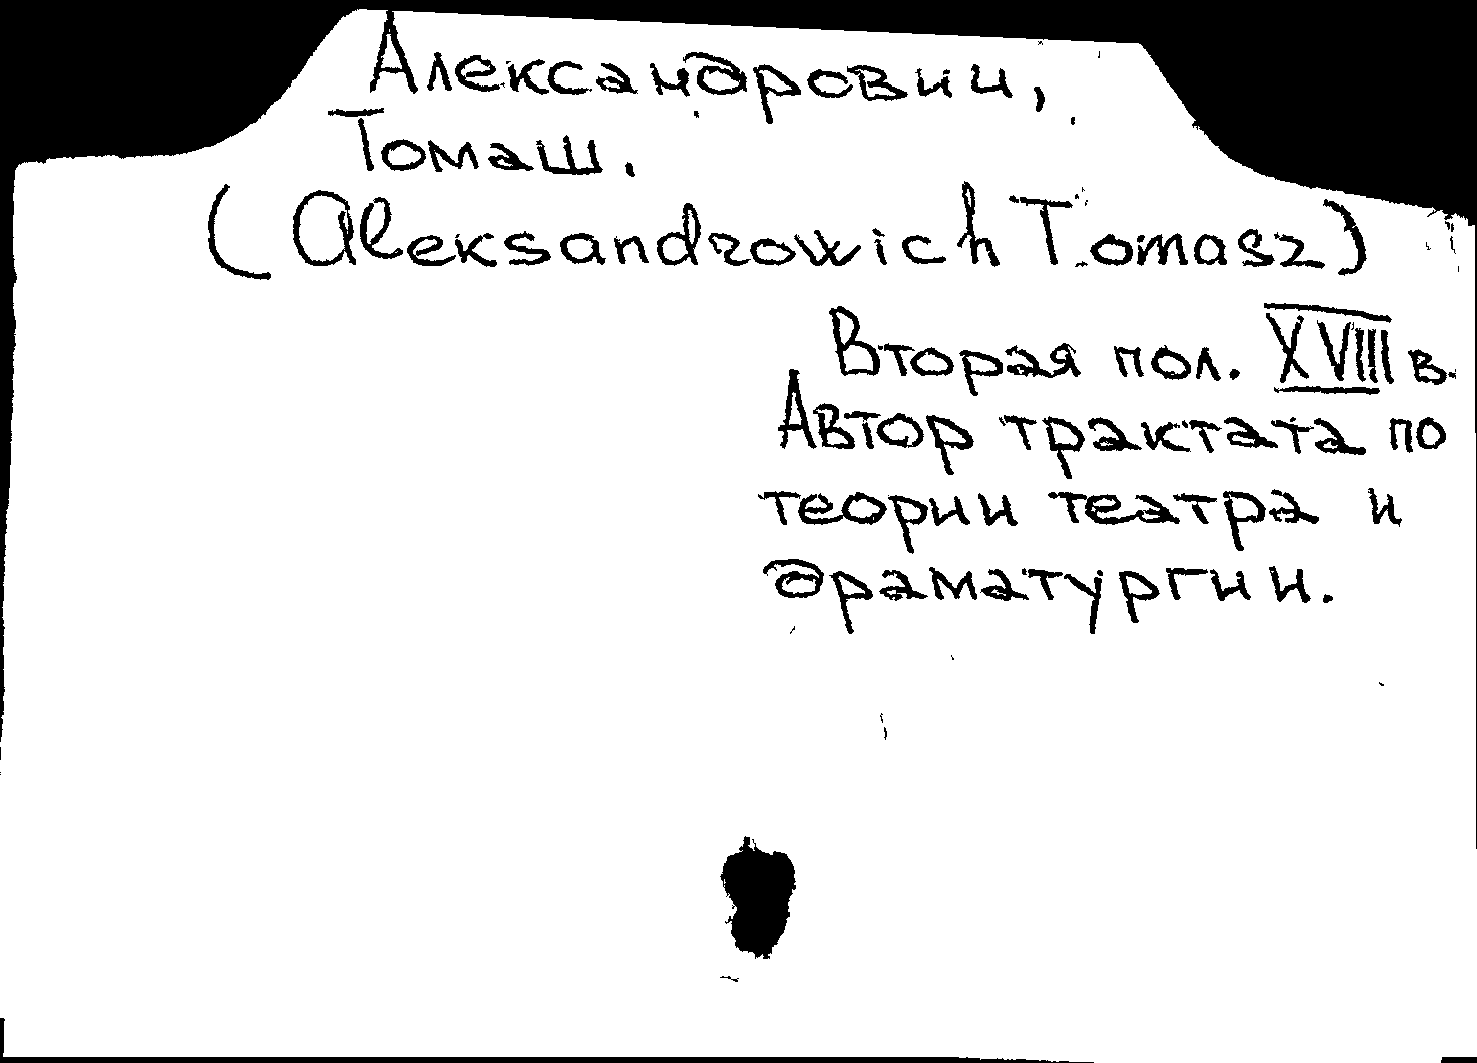 Александрович,
Томаш.
(Aleksandrowich Tomasz)
Вторая пол. XVIII в.
Автор трактата по
теории театра и
драматургии.